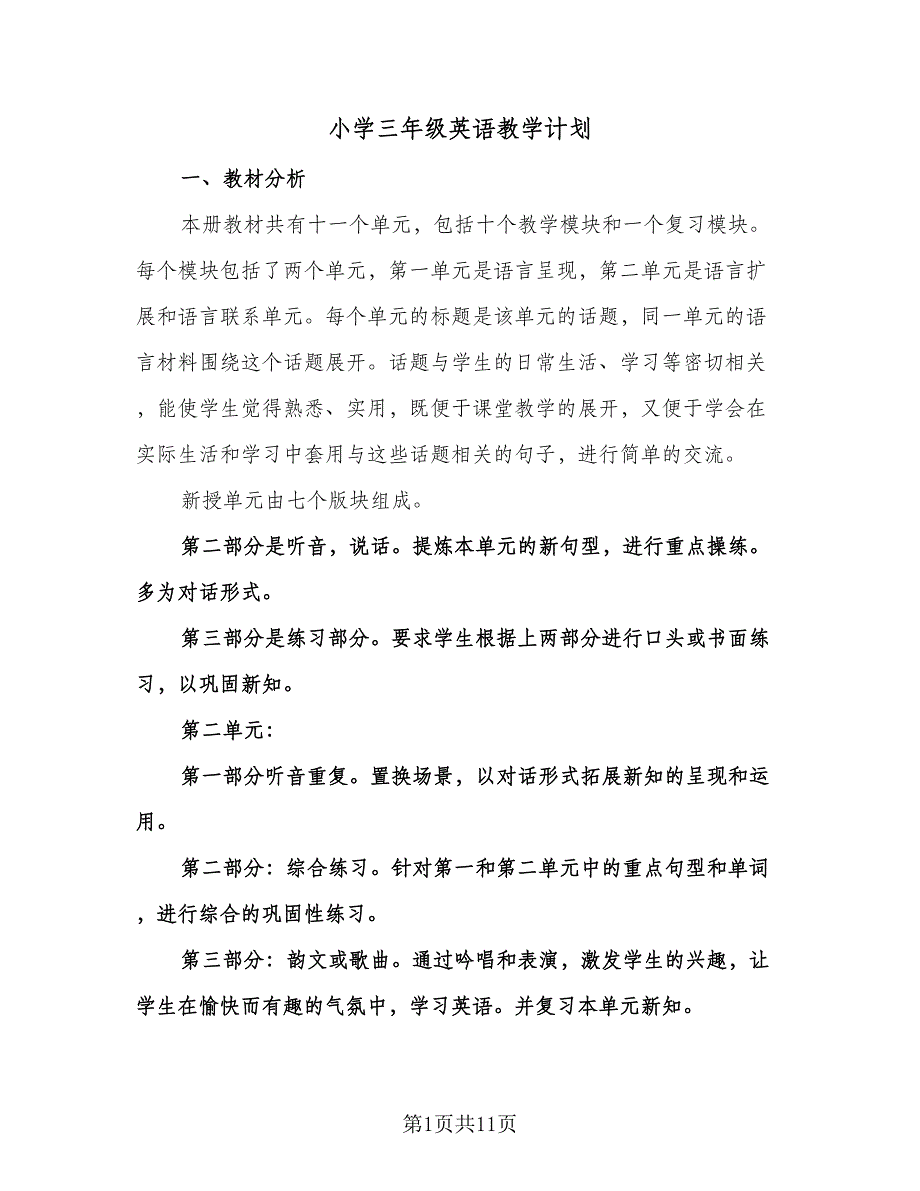 小学三年级英语教学计划
一、教材分析
本册教材共有十一个单元，包括十个教学模块和一个复习模块。
每个模块包括了两个单元，第一单元是语言呈现，第二单元是语言扩
展和语言联系单元。每个单元的标题是该单元的话题，同一单元的语
言材料围绕这个话题展开。话题与学生的日常生活、学习等密切相关
，能使学生觉得熟悉、实用，既便于课堂教学的展开，又便于学会在
实际生活和学习中套用与这些话题相关的句子，进行简单的交流。
新授单元由七个版块组成。
第二部分是听音，说话。提炼本单元的新句型，进行重点操练。
多为对话形式。
第三部分是练习部分。要求学生根据上两部分进行口头或书面练
习，以巩固新知。
第二单元：
第一部分听音重复。置换场景，以对话形式拓展新知的呈现和运
用。
第二部分：综合练习。针对第一和第二单元中的重点句型和单词
，进行综合的巩固性练习。
第三部分：韵文或歌曲。通过吟唱和表演，激发学生的兴趣，让
学生在愉快而有趣的气氛中，学习英语。并复习本单元新知。
第1页共11页